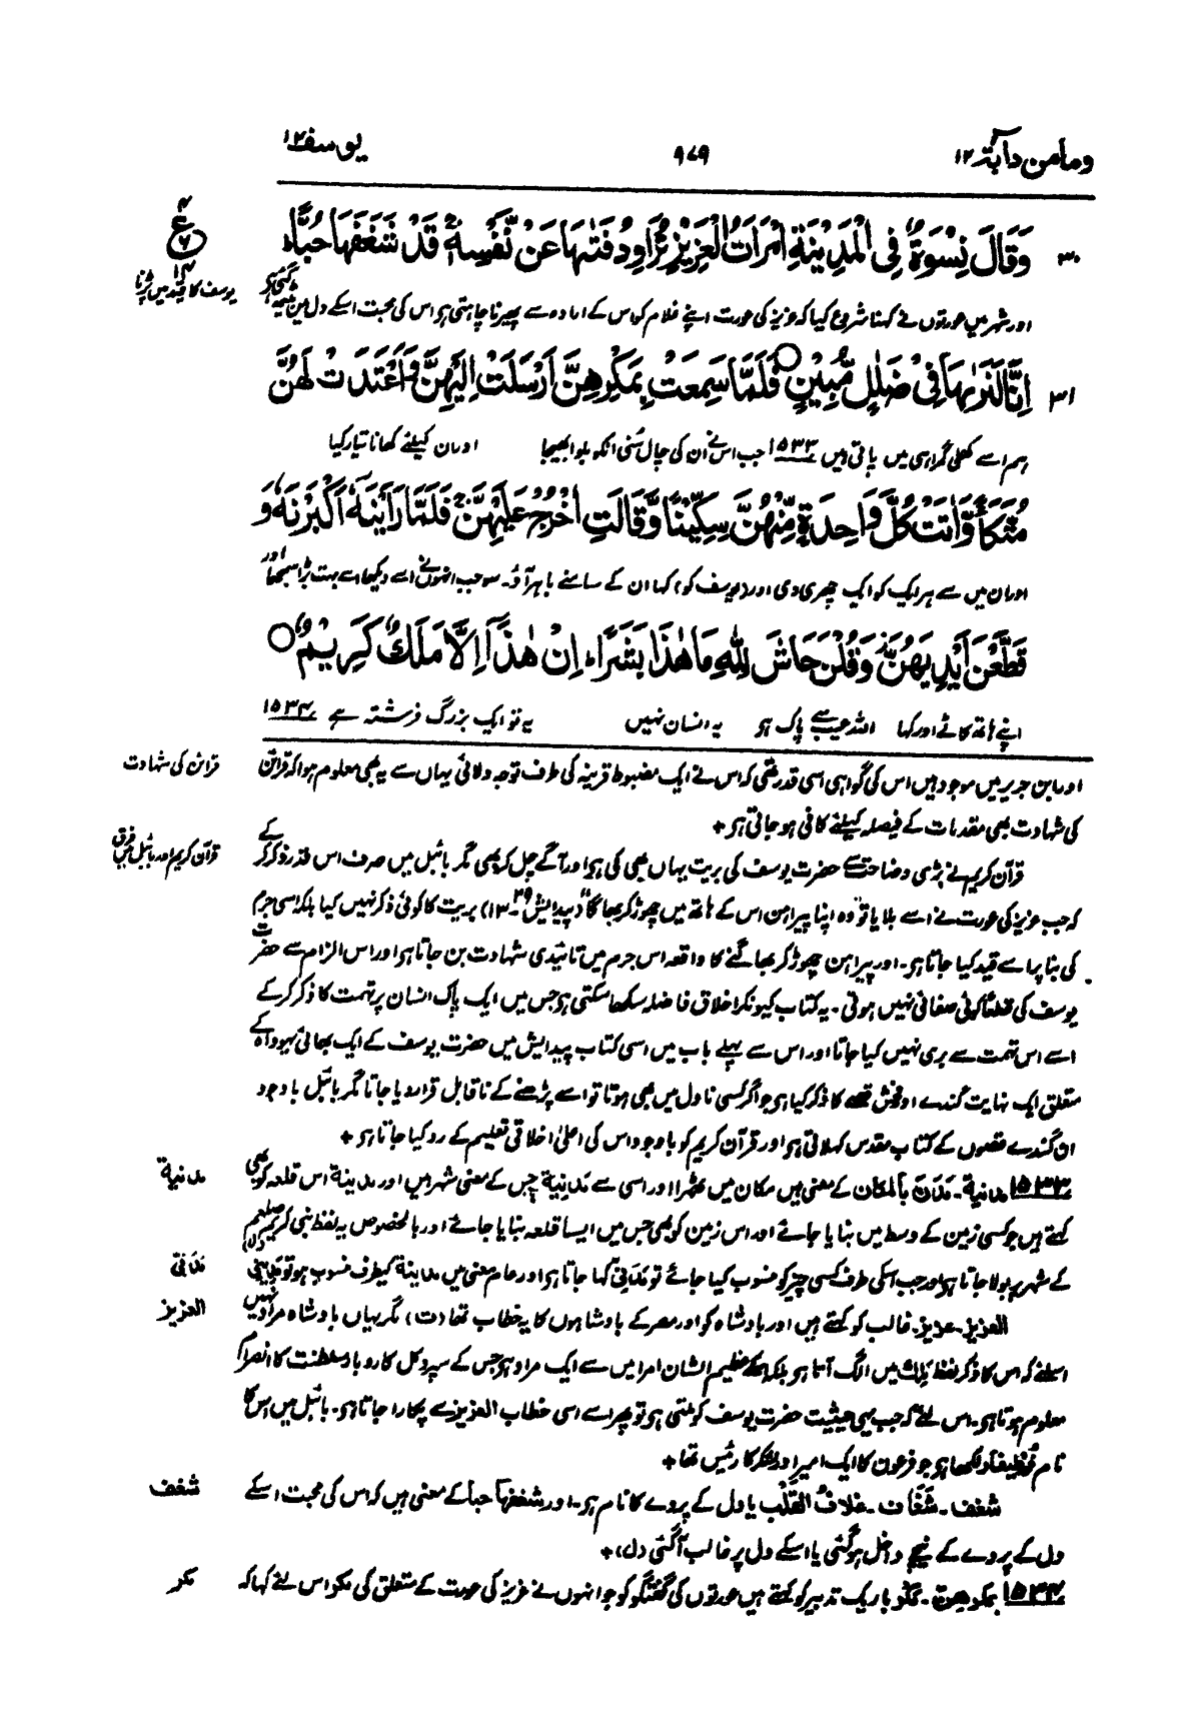 ومامن دآبة ۱۲
۹۷۹
یوسف ۱۲
۳۰ وَقَالَ نِسْوَةٌ فِی الْمَدِیْنَةِ امْرَاَتُ الْعَزِیْزِ تُرَاوِدُ فَتٰىهَا عَنْ نَّفْسِهٖ ۚ قَدْ شَغَفَهَا حُبًّا ؕ
ع
یوسف کا قید میں پڑنا
اور شہر میں عورتوں نے کہنا شروع کیا کہ عزیز کی عورت اپنے غلام کو اس کے ارادہ سے پھیرنا چاہتی ہو اس کی محبت اسکے دل میں
اِنَّا لَنَرٰىهَا فِیْ ضَلٰلٍ مُّبِیْنٍ ○ ۳۱ فَلَمَّا سَمِعَتْ بِمَكْرِهِنَّ اَرْسَلَتْ اِلَیْهِنَّ وَ اَعْتَدَتْ لَهُنَّ
ہم اسے کھلی گمراہی میں پاتی ہیں ۱۵۳۳ جب اس نے ان کی چال سُنی انکو بلوا بھیجا اور ان کیلئے کھانا تیار کیا
مُتَّكَاً وَّ اٰتَتْ كُلَّ وَاحِدَةٍ مِّنْهُنَّ سِكِّیْنًا وَّ قَالَتِ اخْرُجْ عَلَیْهِنَّ ۚ فَلَمَّا رَاَیْنَهٗۤ اَكْبَرْنَهٗ وَ
اور ان میں سے ہر ایک کو ایک چھری دی اور (یوسف کو) کہا ان کے سامنے باہر آؤ۔ سو جب انہوں نے اسے دیکھا اسے بہت بڑا سمجھا اور
قَطَّعْنَ اَیْدِیَهُنَّ وَ قُلْنَ حَاشَ لِلّٰهِ مَا هٰذَا بَشَرًا ؕ اِنْ هٰذَاۤ اِلَّا مَلَكٌ كَرِیْمٌ ○
اپنے ہاتھ کاٹے اور کہا اللہ عیب سے پاک ہو یہ انسان نہیں یہ تو ایک بزرگ فرشتہ ہے ۱۵۳۴
قرائن کی شہادت
اور ابن جریر میں موجود ہیں اس کی گواہی اسی قدر تھی کہ اس نے ایک مضبوط قرینہ کی طرف توجہ دلائی یہاں سے یہ بھی معلوم ہوا کہ قرائن
کی شہادت بھی مقدمات کے فیصلہ کیلئے کافی ہو جاتی ہو +
قرآن کریم اور بائبل میں فرق
قرآن کریم نے بڑی وضاحت سے حضرت یوسف کی بریت یہاں بھی کی ہو اور آگے چل کر بھی مگر بائبل میں صرف اس قدر ذکر کر کے
کہ جب عزیز کی عورت نے اسے بلایا تو "وہ اپنا پیراہن اس کے ہاتھ میں چھوڑ کر بھاگا" (پیدایش ۳۹-۱۳) بریت کا کوئی ذکر نہیں کیا بلکہ اسی جرم
کی بنا پر اسے قید کیا جاتا ہو۔ اور پیراہن چھوڑ کر بھاگنے کا واقعہ اس جرم میں تائیدی شہادت بن جاتا ہو اور اس الزام سے حضرت
یوسف کی قطعًا کوئی صفائی نہیں ہوتی۔ یہ کتاب کیونکر اخلاق فاضلہ سکھا سکتی ہو جس میں ایک پاک انسان پر تہمت کا ذکر کر کے
اسے اس تہمت سے بری نہیں کیا جاتا اور اس سے پہلے باب میں اسی کتاب پیدایش میں حضرت یوسف کے ایک بھائی یہوداہ کے
متعلق ایک نہایت گندے اور فحش قصے کا ذکر کیا ہو جو اگر کسی ناول میں بھی ہوتا تو اسے پڑھنے کے ناقابل قرار دیا جاتا مگر بائبل باوجود
ان گندے قصوں کے کتاب مقدس کہلاتی ہو اور قرآن کریم کو باوجود اس کی اعلیٰ اخلاقی تعلیم کے رد کیا جاتا ہو +
مدینة
۱۵۳۳ مدینة۔ مَدَنَ بالمکان کے معنی ہیں مکان میں ٹھہرا اور اسی سے مَدِیْنَة جس کے معنی شہر ہیں اور مدینة اس قلعہ کو بھی
کہتے ہیں جو کسی زمین کے وسط میں بنایا جائے اور اس زمین کو بھی جس میں ایسا قلعہ بنایا جائے اور بالخصوص یہ لفظ نبی کریم صلعم
مَدَنِیّ
کے شہر پر بولا جاتا ہو اور جب اسکی طرف کسی چیز کو منسوب کیا جائے تو مَدَنِیّ کہا جاتا ہو اور عام معنی میں مدینة کیطرف منسوب ہو تو مَدِیْنِیّ (ل)
العزیز
العزیز۔ عزیز۔ غالب کو کہتے ہیں اور بادشاہ کو اور مصر کے بادشاہوں کا یہ خطاب تھا (ت) مگر یہاں بادشاہ مراد نہیں
اسلئے کہ اس کا ذکر لفظ مَلِك میں الگ آتا ہو بلکہ اسکے عظیم الشان امرا میں سے ایک مراد ہو جس کے سپرد کل کاروبار سلطنت کا انصرام
معلوم ہوتا ہو۔ اس لئے کہ جب یہی حیثیت حضرت یوسف کو ملتی ہو تو پھر اسے اسی خطاب العزیز سے پکارا جاتا ہو۔ بائبل میں اس کا
نام فوطیفار لکھا ہو جو فرعون کا ایک امیر اور لشکر کا رئیس تھا +
شغف
شغف۔ شَغَاف۔ غلافُ القَلْب یا دل کے پردے کا نام ہو۔ اور شغفها حبا کے معنی ہیں کہ اس کی محبت اسکے
دل کے پردے کے نیچے داخل ہو گئی یا اسکے دل پر غالب آگئی (ل) +
مکر
۱۵۳۴ بمکرهن۔ مکر باریک تدبیر کو کہتے ہیں عورتوں کی گفتگو کو جو انہوں نے عزیز کی عورت کے متعلق کی مکر اس لئے کہا کہ